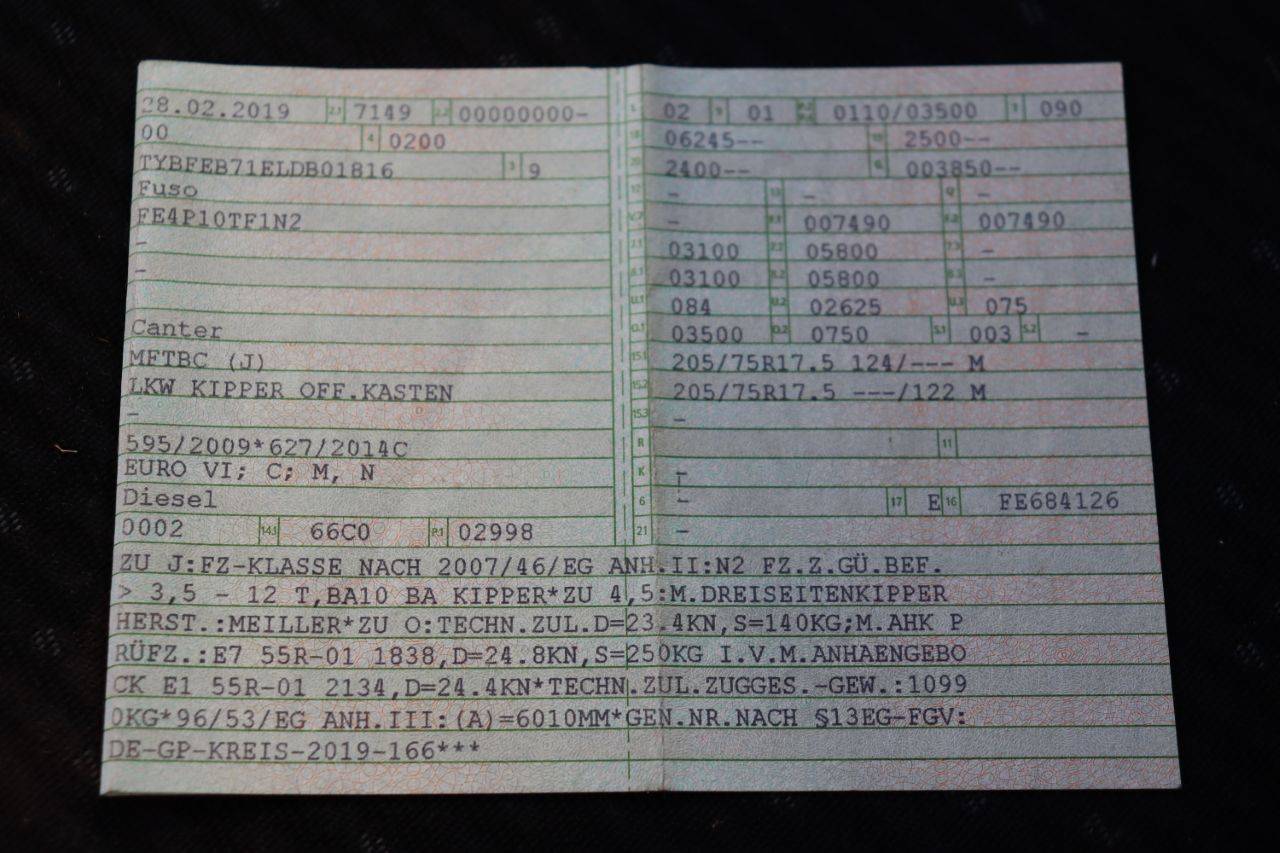 28.02.2019 2.1 7149 2.2 00000000-
00 4 0200
TYBFEB71ELDB01816 3 9
Fuso
FE4P10TF1N2
-
-
Canter
MFTBC (J)
LKW KIPPER OFF.KASTEN
-
595/2009*627/2014C
EURO VI; C; M, N
Diesel
0002 14.1 66C0 P.1 02998
L 02 9 01 0110/03500 T 090
18 06245-- 19 2500--
20 2400-- G 003850--
12 - 13 - Q -
V.7 - F.1 007490 F.2 007490
7.1 03100 7.2 05800 7.3 -
8.1 03100 8.2 05800 8.3 -
U.1 084 U.2 02625 U.3 075
O.1 03500 O.2 0750 S.1 003 S.2 -
15.1 205/75R17.5 124/--- M
15.2 205/75R17.5 ---/122 M
15.3 -
R 11
K -
6 - 17 E 16 FE684126
21 -
ZU J:FZ-KLASSE NACH 2007/46/EG ANH.II:N2 FZ.Z.GÜ.BEF.
> 3,5 - 12 T,BA10 BA KIPPER*ZU 4,5:M.DREISEITENKIPPER
HERST.:MEILLER*ZU O:TECHN.ZUL.D=23.4KN,S=140KG;M.AHK P
RÜFZ.:E7 55R-01 1838,D=24.8KN,S=250KG I.V.M.ANHAENGEBO
CK E1 55R-01 2134,D=24.4KN*TECHN.ZUL.ZUGGES.-GEW.:1099
0KG*96/53/EG ANH.III:(A)=6010MM*GEN.NR.NACH §13EG-FGV:
DE-GP-KREIS-2019-166***